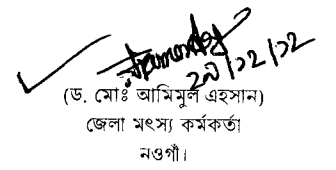 ২০/১২/১২
(ড. মোঃ আমিমুল এহসান)
জেলা মৎস্য কর্মকর্তা
নওগাঁ।